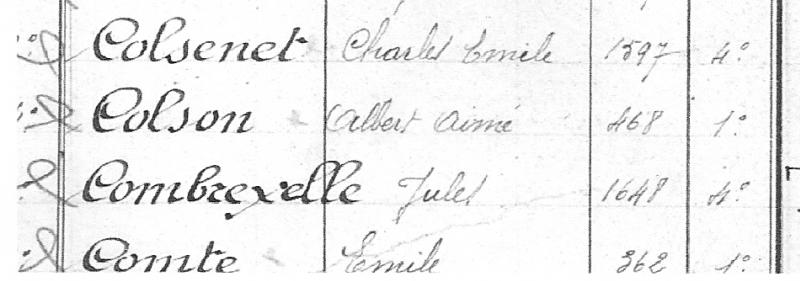 Colsenet Charles Emile 1597 4°
Colson Albert Aimé 468 1°
Combrexelle Jules 1648 4°
Comte Emile 362 1°